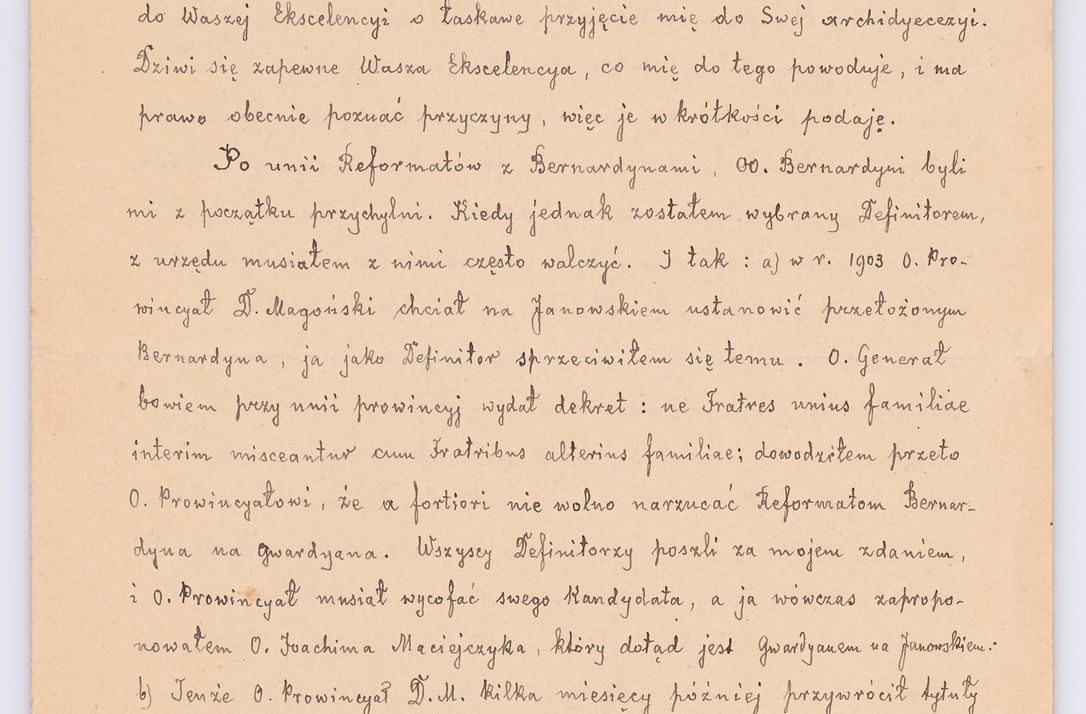 do Waszej Ekscelencyi o łaskawe przyjęcie mię do Swej archidyecezyi.
Dziwi się zapewne Wasza Ekscelencya, co mię do tego powoduje, i ma
prawo obecnie poznać przyczyny, więc je w krótkości podaję.
Po unii Reformatów z Bernardynami, OO. Bernardyni byli
mi z początku przychylni. Kiedy jednak zostałem wybrany Definitorem,
z urzędu musiałem z nimi często walczyć. I tak : a) w r. 1903 O. Pro-
wincyał D. Magoński chciał na Janowskiem ustanowić przełożonym
Bernardyna, ja jako Definitor sprzeciwiłem się temu. O. Generał
bowiem przy unii prowincyj wydał dekret : ne Fratres unius familiae
interim misceantur cum Fratribus alterius familiae; dowodziłem przeto
O. Prowincyałowi, że a fortiori nie wolno narzucać Reformatom Bernar-
dyna na gwardyana. Wszyscy Definitorzy poszli za mojem zdaniem,
i O. Prowincyał musiał wycofać swego Kandydata, a ja wówczas zapropo-
nowałem O. Joachima Maciejczyka, który dotąd jest Gwardyanem na Janowskiem.
b) Tenże O. Prowincyał D. M. kilka miesięcy później przywrócił tytuły